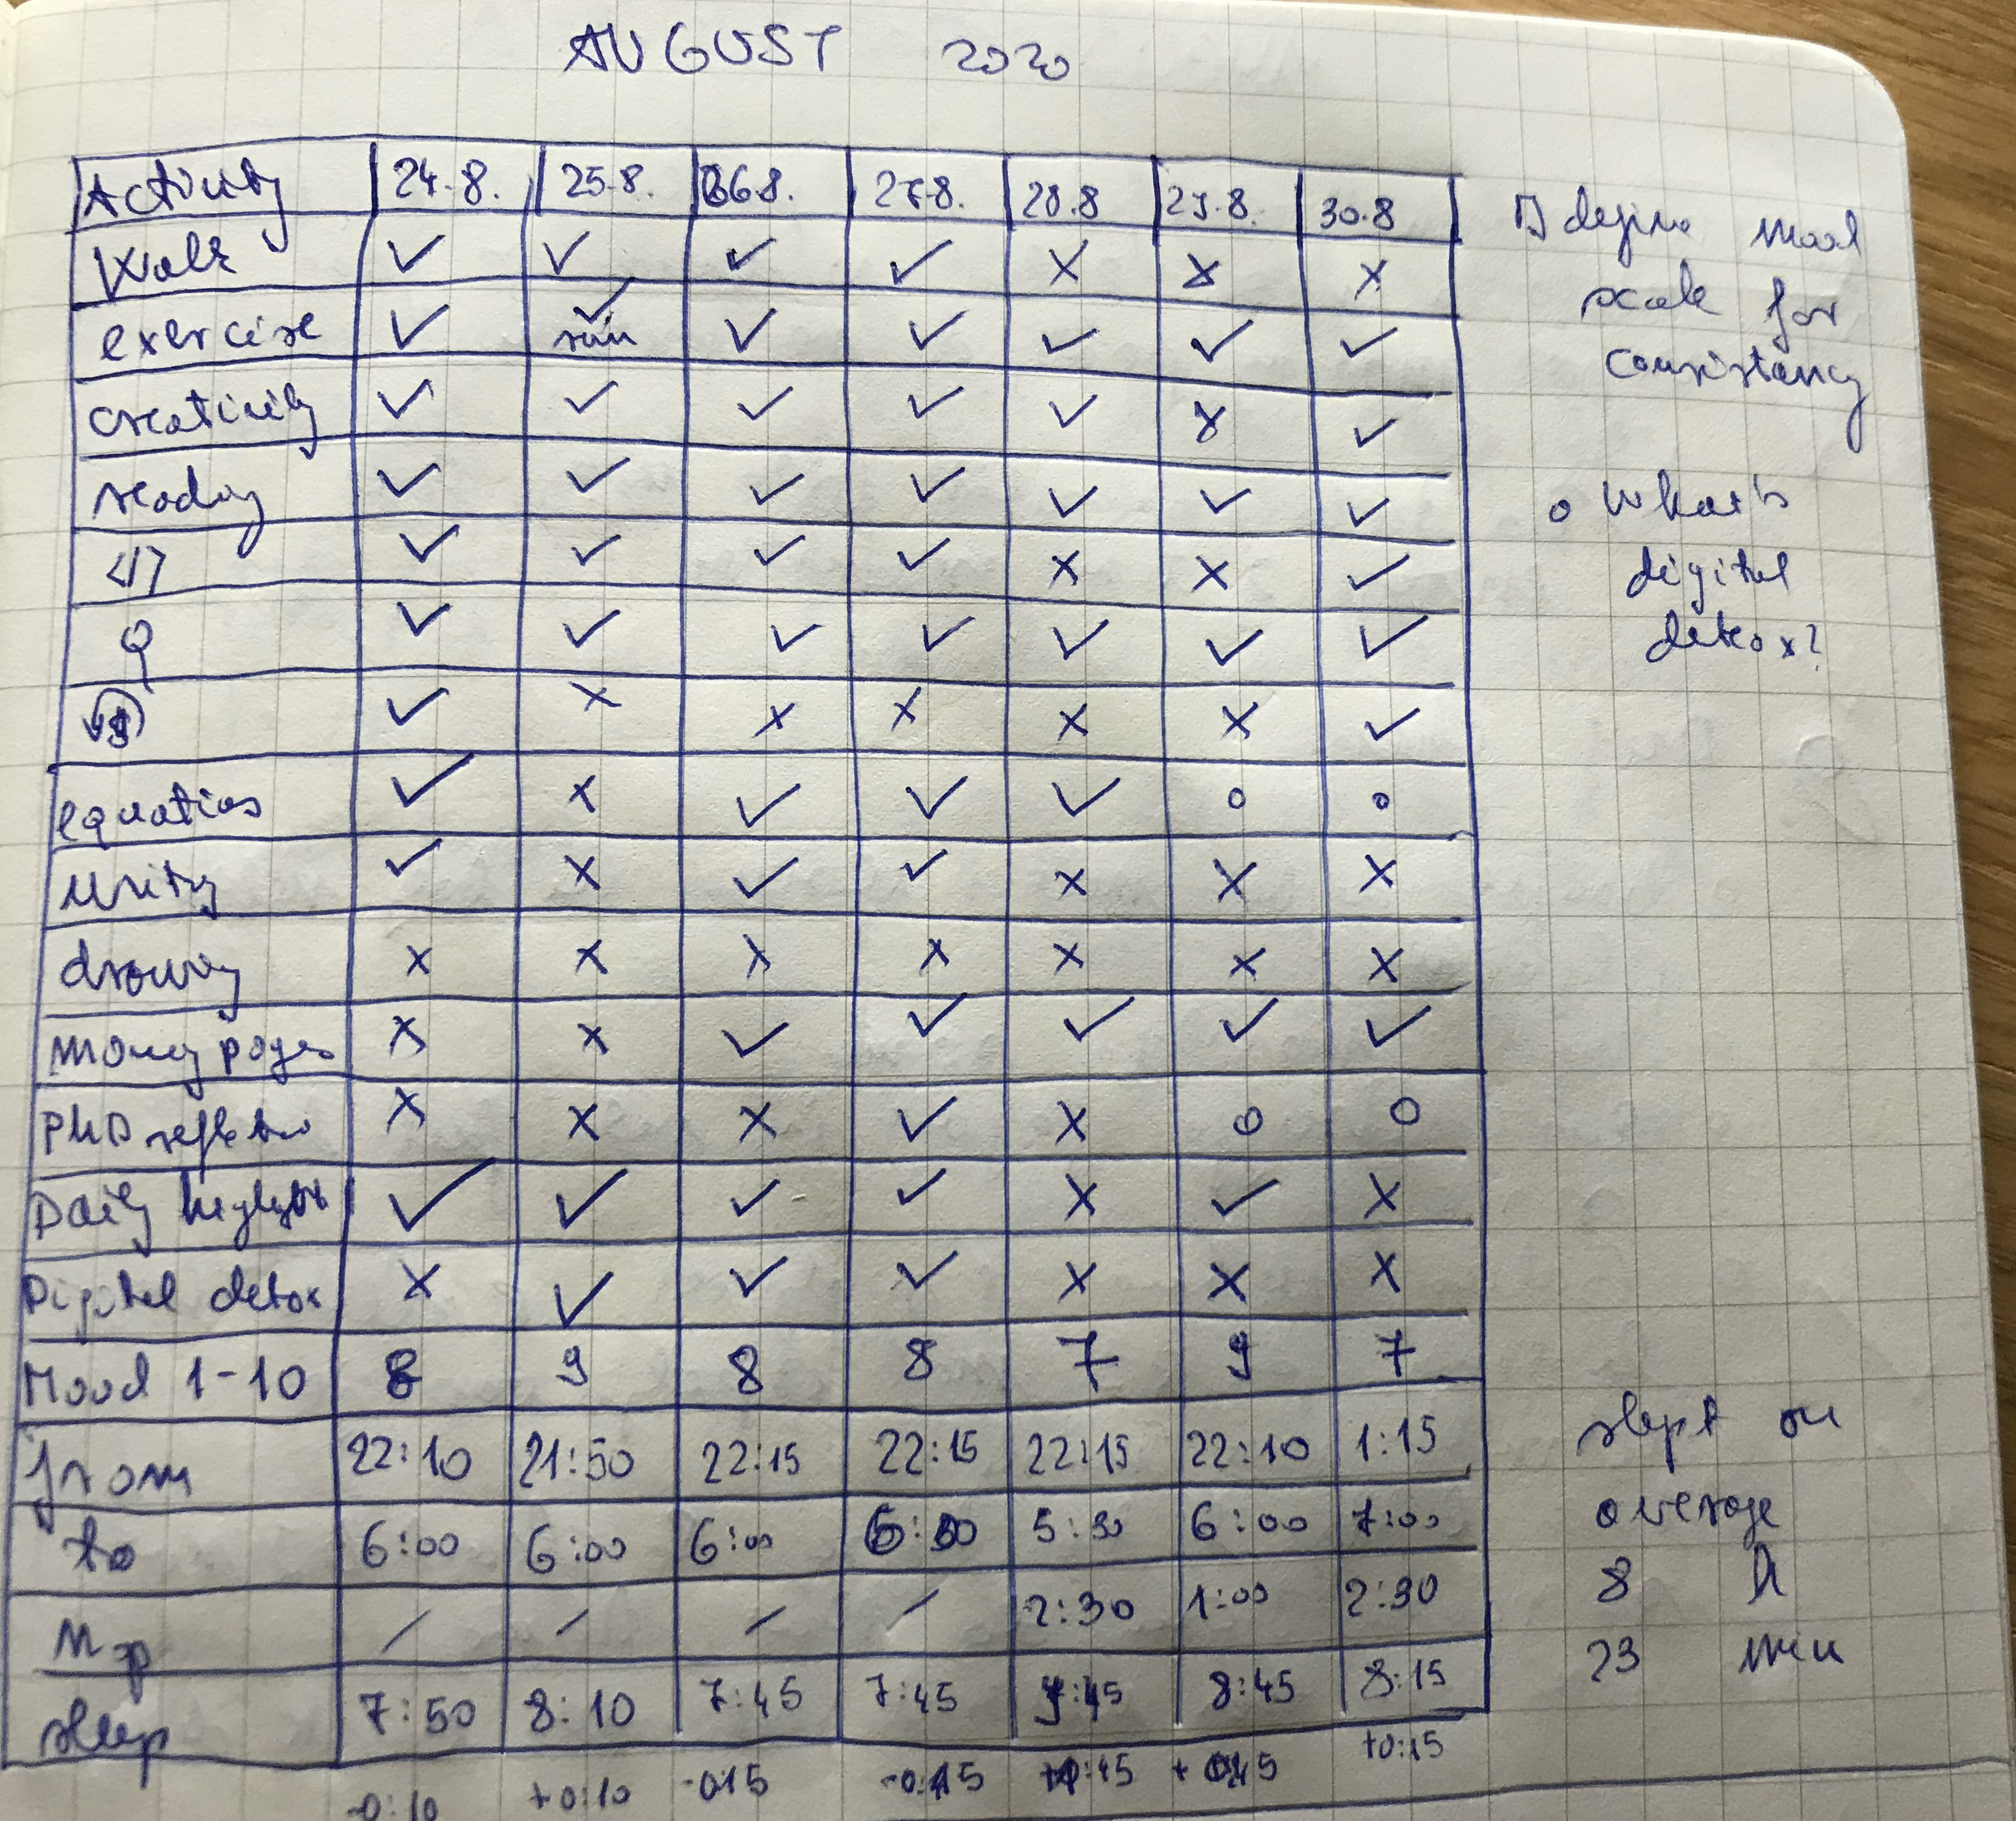 AUGUST 2020
Activity 24.8. 25.8. 26.8. 27.8. 28.8 29.8. 30.8
Walk ✓ ✓ ✓ ✓ X X X
exercise ✓ ✓ rain ✓ ✓ ✓ ✓ ✓
creativity ✓ ✓ ✓ ✓ ✓ X ✓
reading ✓ ✓ ✓ ✓ ✓ ✓ ✓
</> ✓ ✓ ✓ ✓ X X ✓
✓ ✓ ✓ ✓ ✓ ✓ ✓
✓ X X X X X ✓
equations ✓ X ✓ ✓ ✓ o o
writing ✓ X ✓ ✓ X X X
drawing X X X X X X X
X X ✓ ✓ ✓ ✓ ✓
PhD reflection X X X ✓ X o o
Daily highlight ✓ ✓ ✓ ✓ X ✓ X
Digital detox X ✓ ✓ ✓ X X X
Mood 1-10 8 9 8 8 7 9 7
from 22:10 21:50 22:15 22:15 22:15 22:10 1:15
to 6:00 6:00 6:00 5:30 6:00 7:00
Nap / / / / 2:30 1:00 2:30
sleep 7:50 8:10 7:45 7:45 9:45 8:45 8:15
-0:10 +0:10 -0:15 -0:15 +0:45 +0:15
1) define mood
scale for
consistancy
o What's
digital
detox?
slept on
average
8 h
23 min